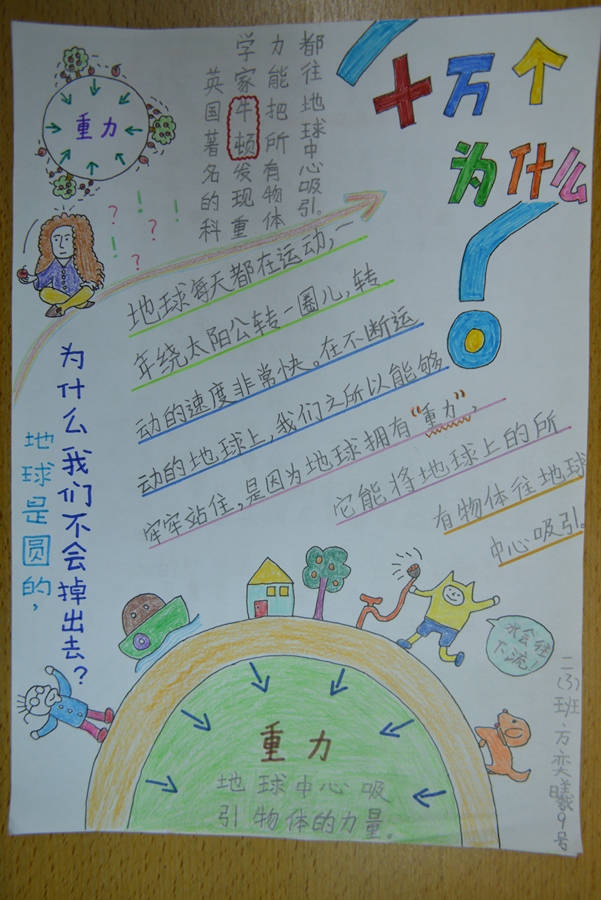 十万个
为什么
?
重力
英国著名的科
学家牛顿发现重
力能把所有物体
都往地球中心吸引。
? ! ? ! ? !
地球每天都在运动，一
年绕太阳公转一圈儿，转
动的速度非常快。在不断运
动的地球上，我们之所以能够
牢牢站住，是因为地球拥有“重力”，
它能将地球上的所
有物体往地球
中心吸引。
地球是圆的，
为什么我们不会掉出去？
水会往
下流！
重力
地球中心吸
引物体的力量。
二(3)班方奕曦9号